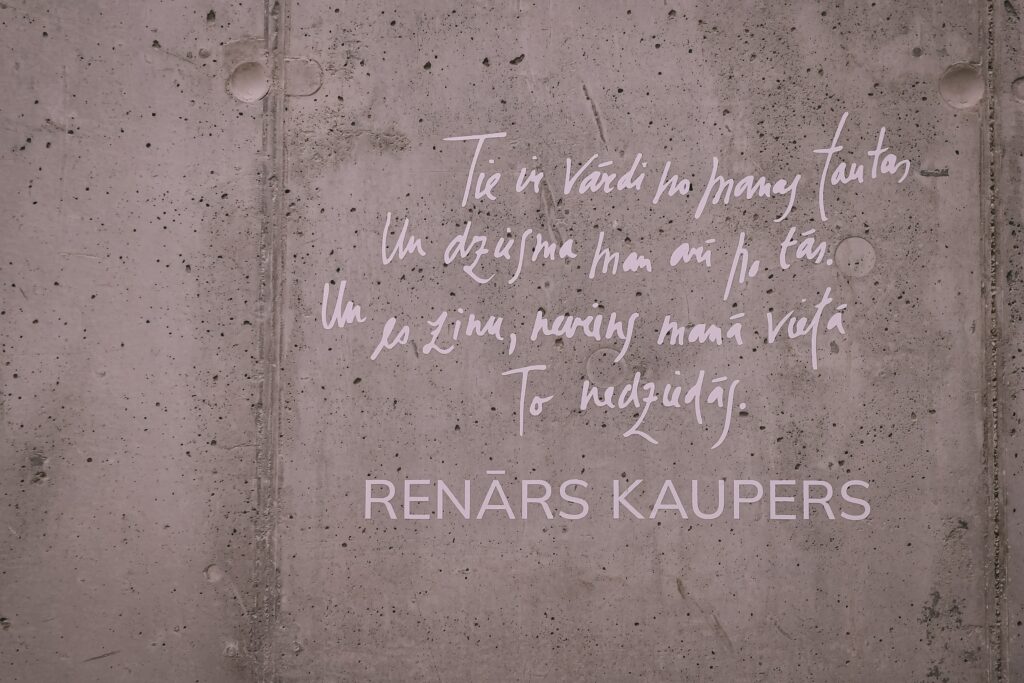 Tie ir vārdi no manas tautas
Un dziesma man arī no tās.
Un es zinu, neviens manā vietā
To nedziedās.
RENĀRS KAUPERS